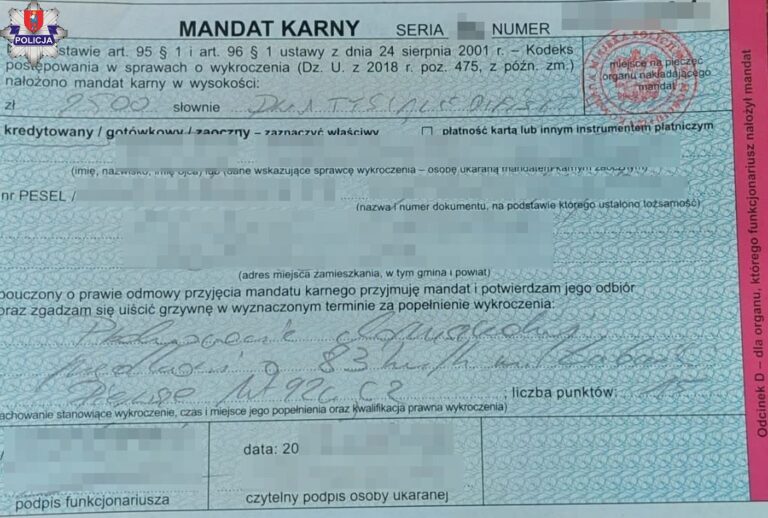 POLICJA
MANDAT KARNY SERIA NUMER
stawie art. 95 § 1 i art. 96 § 1 ustawy z dnia 24 sierpnia 2001 r. – Kodeks
postępowania w sprawach o wykroczenia (Dz. U. z 2018 r. poz. 475, z późn. zm.)
nałożono mandat karny w wysokości:
zł 2500 słownie DWA TYSIĄCE
miejsce na pieczęć
organu nakładającego
mandat
kredytowany / gotówkowy / zaoczny – zaznaczyć właściwy
płatność kartą lub innym instrumentem płatniczym
(imię, nazwisko, imię ojca) lub (dane wskazujące sprawcę wykroczenia – osobę ukaraną mandatem karnym zaocznym)
nr PESEL /
(nazwa i numer dokumentu, na podstawie którego ustalono tożsamość)
(adres miejsca zamieszkania, w tym gmina i powiat)
pouczony o prawie odmowy przyjęcia mandatu karnego przyjmuję mandat i potwierdzam jego odbiór
oraz zgadzam się uiścić grzywnę w wyznaczonym terminie za popełnienie wykroczenia:
o 83 km/h
; liczba punktów: 15
achowanie stanowiące wykroczenie, czas i miejsce jego popełnienia oraz kwalifikacja prawna wykroczenia)
podpis funkcjonariusza
data: 20
czytelny podpis osoby ukaranej
Odcinek D – dla organu, którego funkcjonariusz nałożył mandat